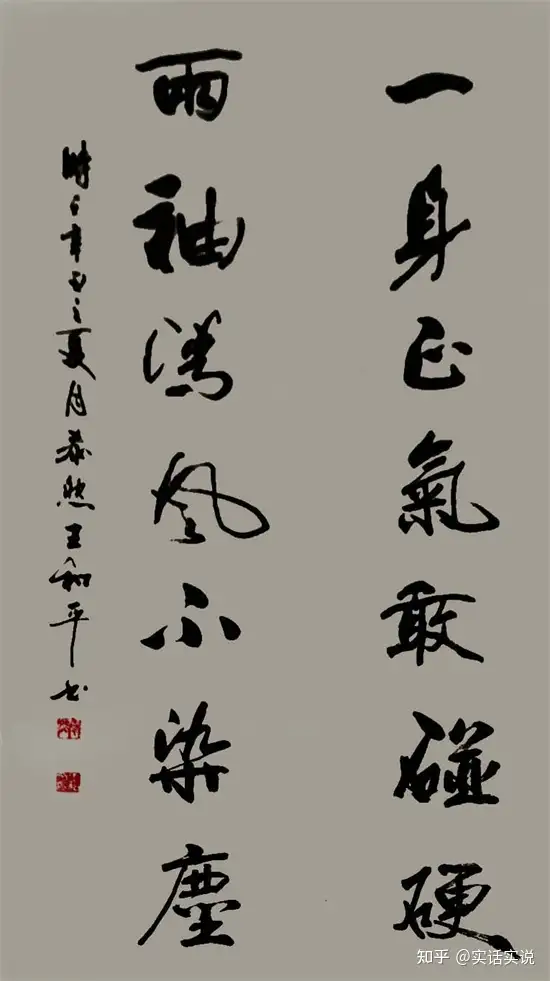 一身正氣敢碰硬
兩袖清風不染塵
時于辛丑之夏月泰然王和平书
知乎 @实话实说